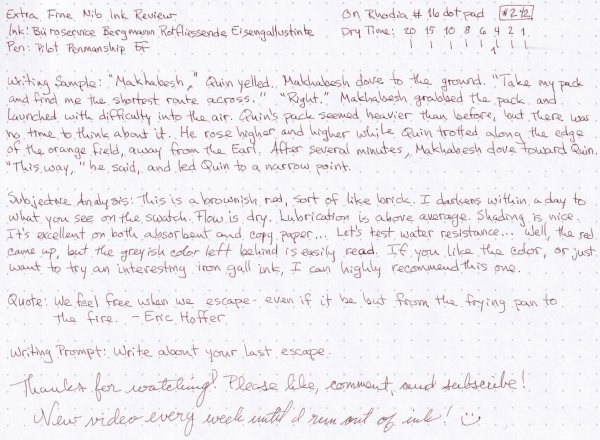 Extra Fine Nib Ink Review
On Rhodia #16 dot pad #242
Ink: Büroservice Bergmann Rotfliessende Eisengallustinte
Dry Time: 20 15 10 8 6 4 2 1
Pen: Pilot Penmanship EF
Writing Sample: "Makhabesh," Quin yelled. Makhabesh dove to the ground. "Take my pack
and find me the shortest route across." "Right." Makhabesh grabbed the pack and
launched with difficulty into the air. Quin's pack seemed heavier than before, but there was
no time to think about it. He rose higher and higher while Quin trotted along the edge
of the orange field, away from the Earl. After several minutes, Makhabesh dove toward Quin.
"This way," he said, and led Quin to a narrow point.
Subjective Analysis: This is a brownish red, sort of like brick. I darkens within a day to
what you see on the swatch. Flow is dry. Lubrication is above average. Shading is nice.
It's excellent on both absorbent and copy paper... Let's test water resistance... Well, the red
came up, but the greyish color left behind is easily read. If you like the color, or just
want to try an interesting iron gall ink, I can highly recommend this one.
Quote: We feel free when we escape - even if it be but from the frying pan to
the fire. - Eric Hoffer
Writing Prompt: Write about your last escape.
Thanks for watching! Please like, comment, and subscribe!
New video every week until I run out of ink!